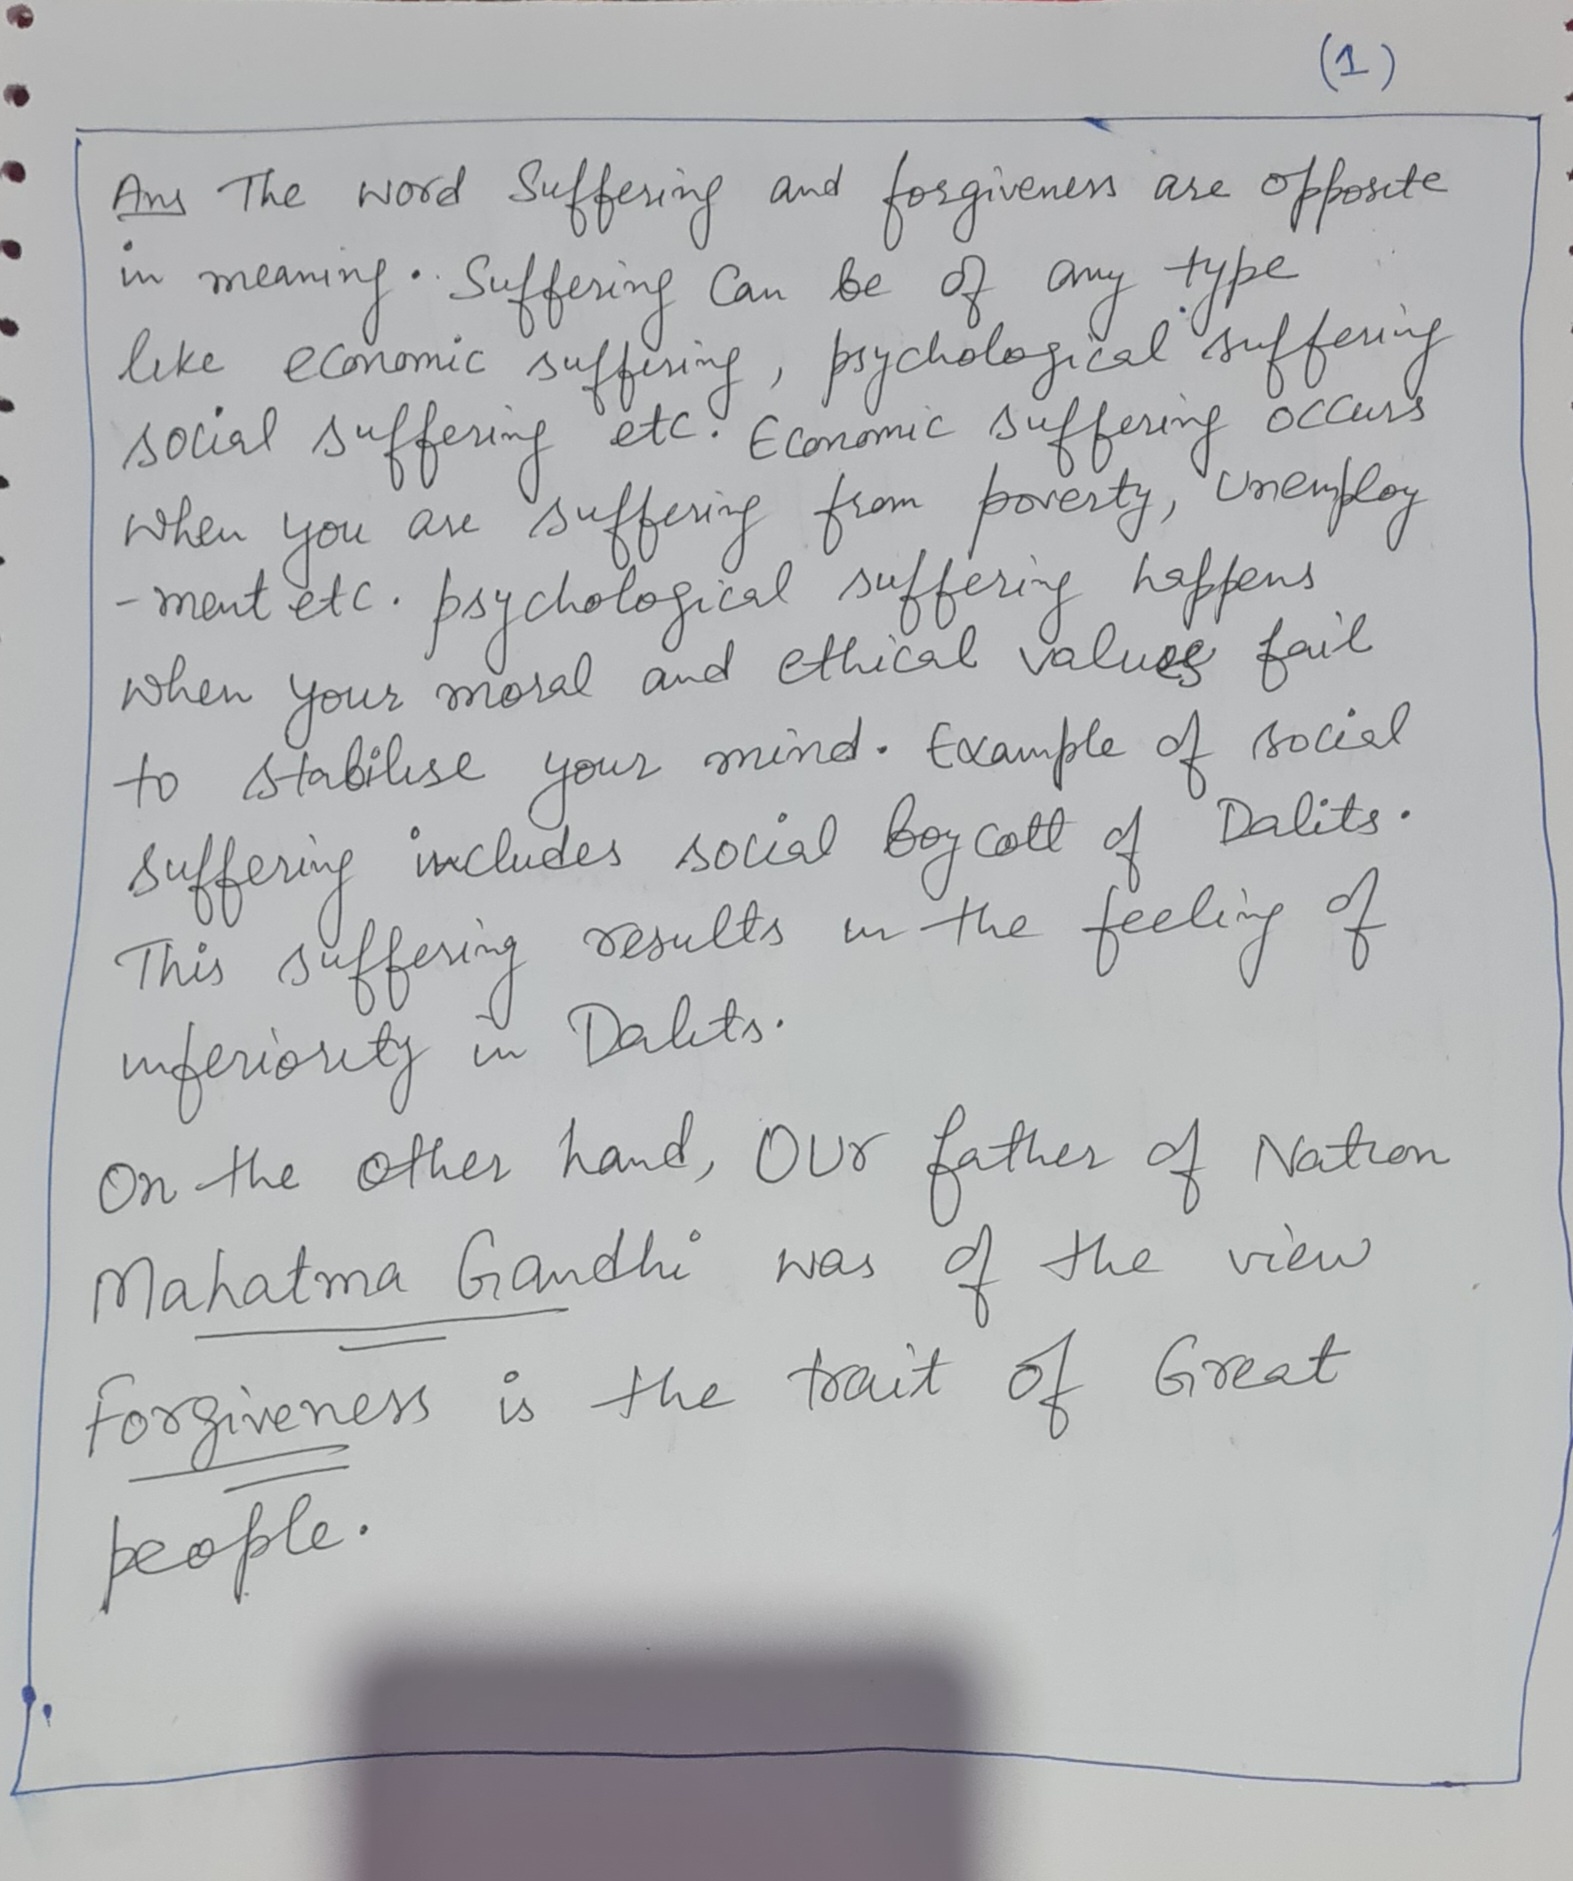 (1)
Ans The word Suffering and forgiveness are opposite
in meaning. Suffering can be of any type
like economic suffering, psychological suffering
social suffering etc. Economic suffering occurs
when you are suffering from poverty, unemploy
-ment etc. psychological suffering happens
when your moral and ethical values fail
to stabilise your mind. Example of social
suffering includes social boycott of Dalits.
This suffering results in the feeling of
inferiority in Dalits.
On the other hand, Our father of Nation
Mahatma Gandhi was of the view
Forgiveness is the trait of Great
people.